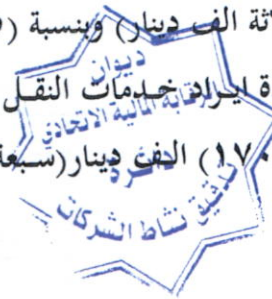 ثة الف دينار) وبنسبة (
ة ايراد خدمات النقل
١٧٠) الف دينار(سبعة
ديوان
الرقابة المالية الاتحادي
دائرة
تدقيق نشاط الشركات